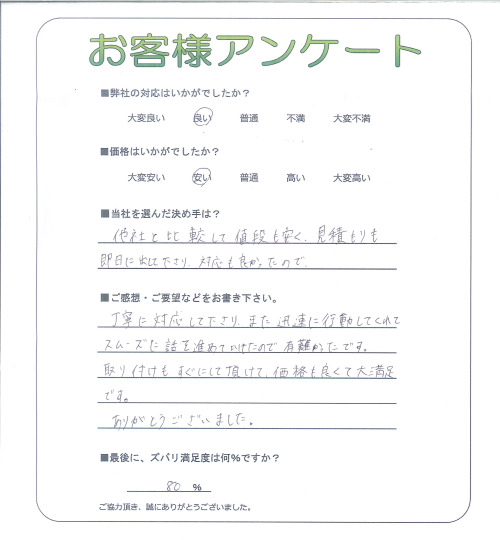 お客様アンケート
■弊社の対応はいかがでしたか？
大変良い 良い 普通 不満 大変不満
■価格はいかがでしたか？
大変安い 安い 普通 高い 大変高い
■当社を選んだ決め手は？
他社と比較して値段も安く、見積もりも
即日に出して下さり、対応も良かったので、
■ご感想・ご要望などをお書き下さい。
丁寧に対応して下さり、また迅速に行動してくれて
スムーズに話を進めていけたので有難かったです。
取り付けもすぐにして頂けて、価格も良くて大満足
です。
ありがとうございました。
■最後に、ズバリ満足度は何%ですか？
80 %
ご協力頂き、誠にありがとうございました。